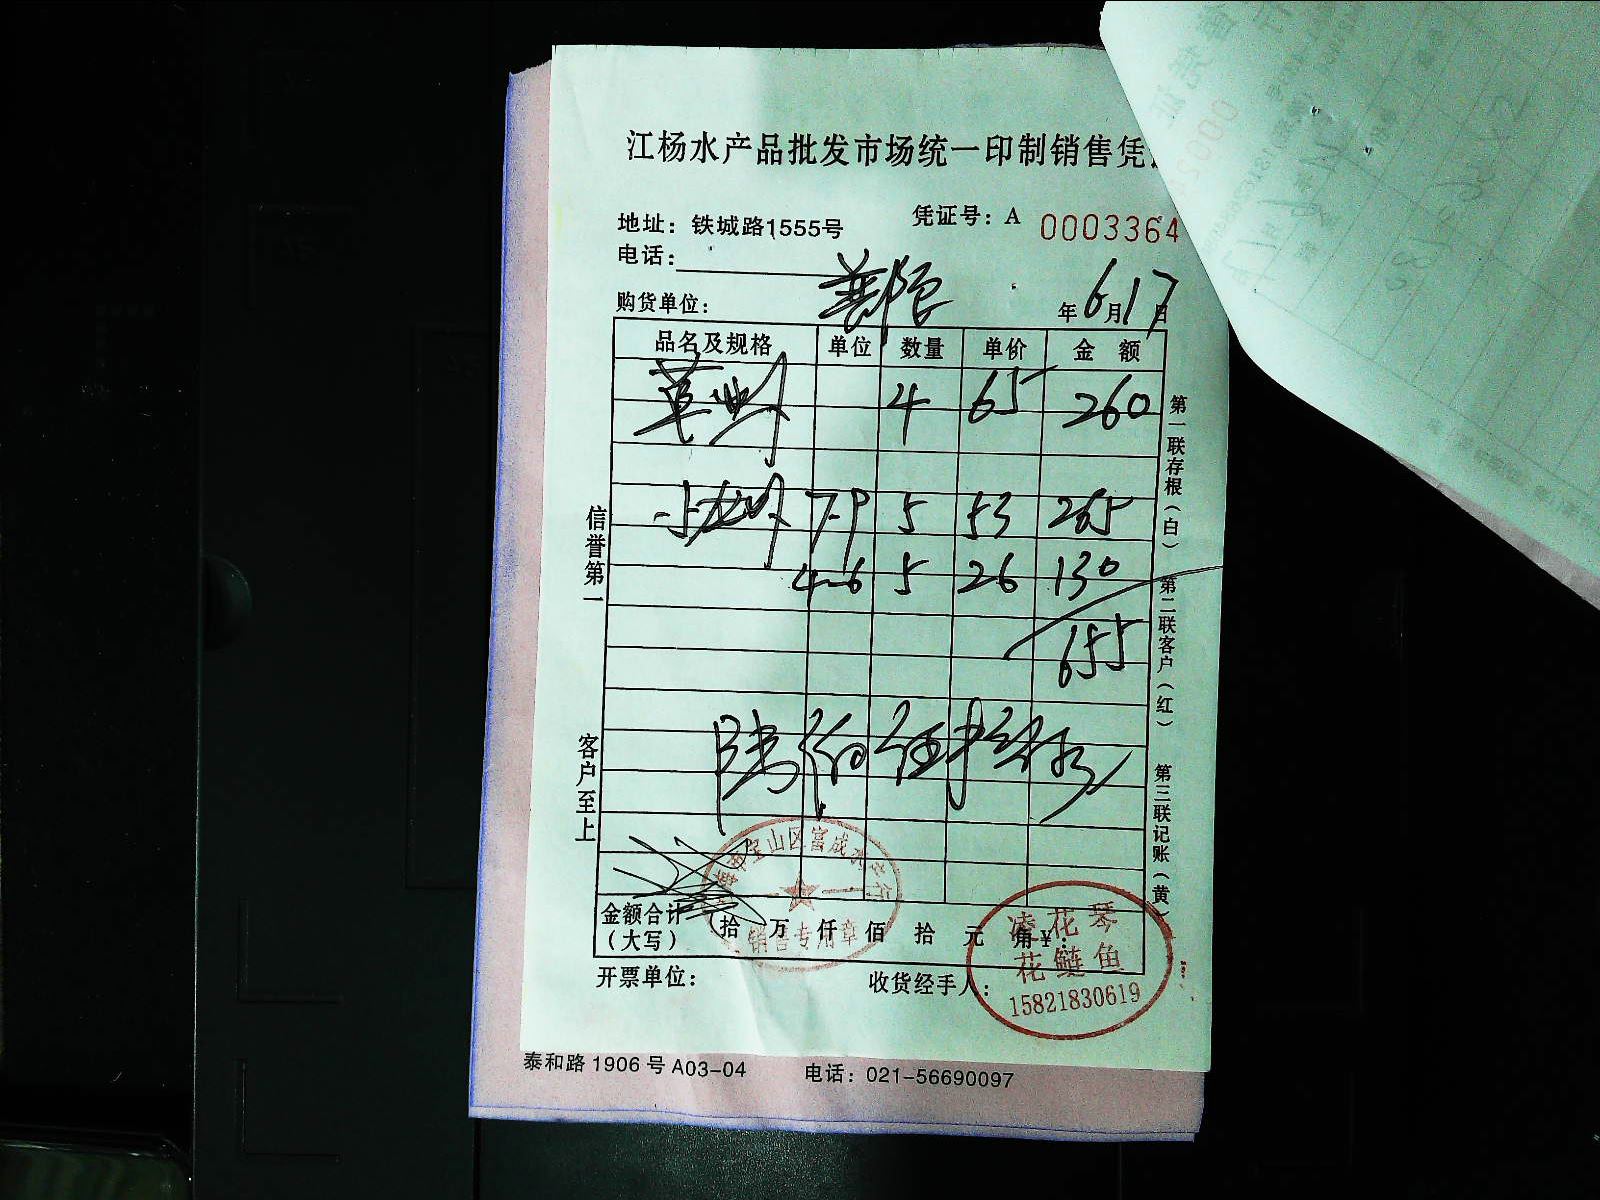 江杨水产品批发市场统一印制销售凭
地址：铁城路1555号 凭证号：A 0003364
电话：
购货单位： 年6月17日
品名及规格 单位 数量 单价 金额
草虾 4 65 260
小龙虾 7-9 5 53 265
4-6 5 26 130
655
陆佰伍拾伍
金额合计（大写） 拾 万 仟 佰 拾 元 角 ¥：
开票单位： 收货经手人：
信誉第一
客户至上
第一联存根（白） 第二联客户（红） 第三联记账（黄）
销售专用章
凌花琴
花鲢鱼
15821830619
泰和路1906号A03-04 电话：021-56690097